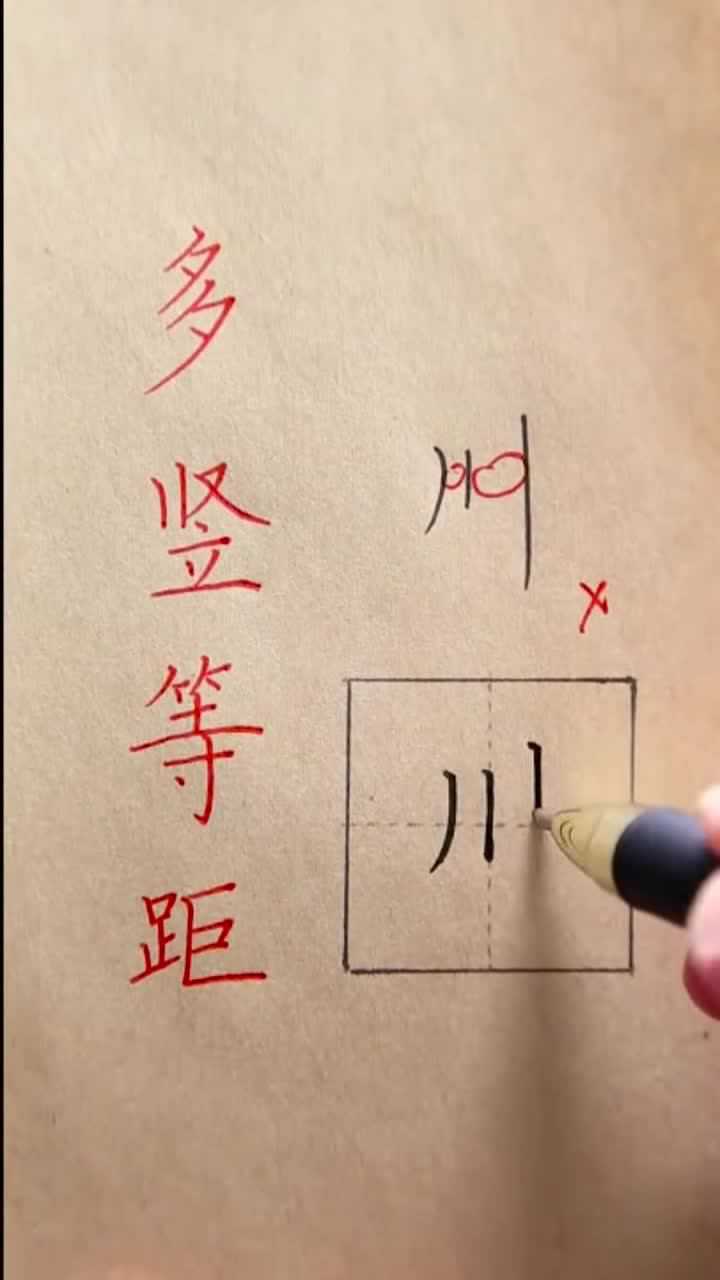 多竖等距
川
x
川